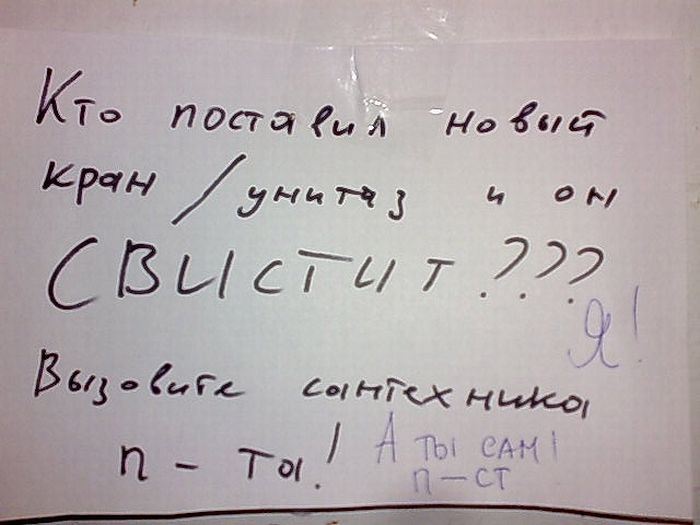 Кто поставил новый
кран / унитаз и он
СВИСТИТ???
Я!
Вызовите сантехника
п - ты!
А ТЫ САМ!
П-СТ